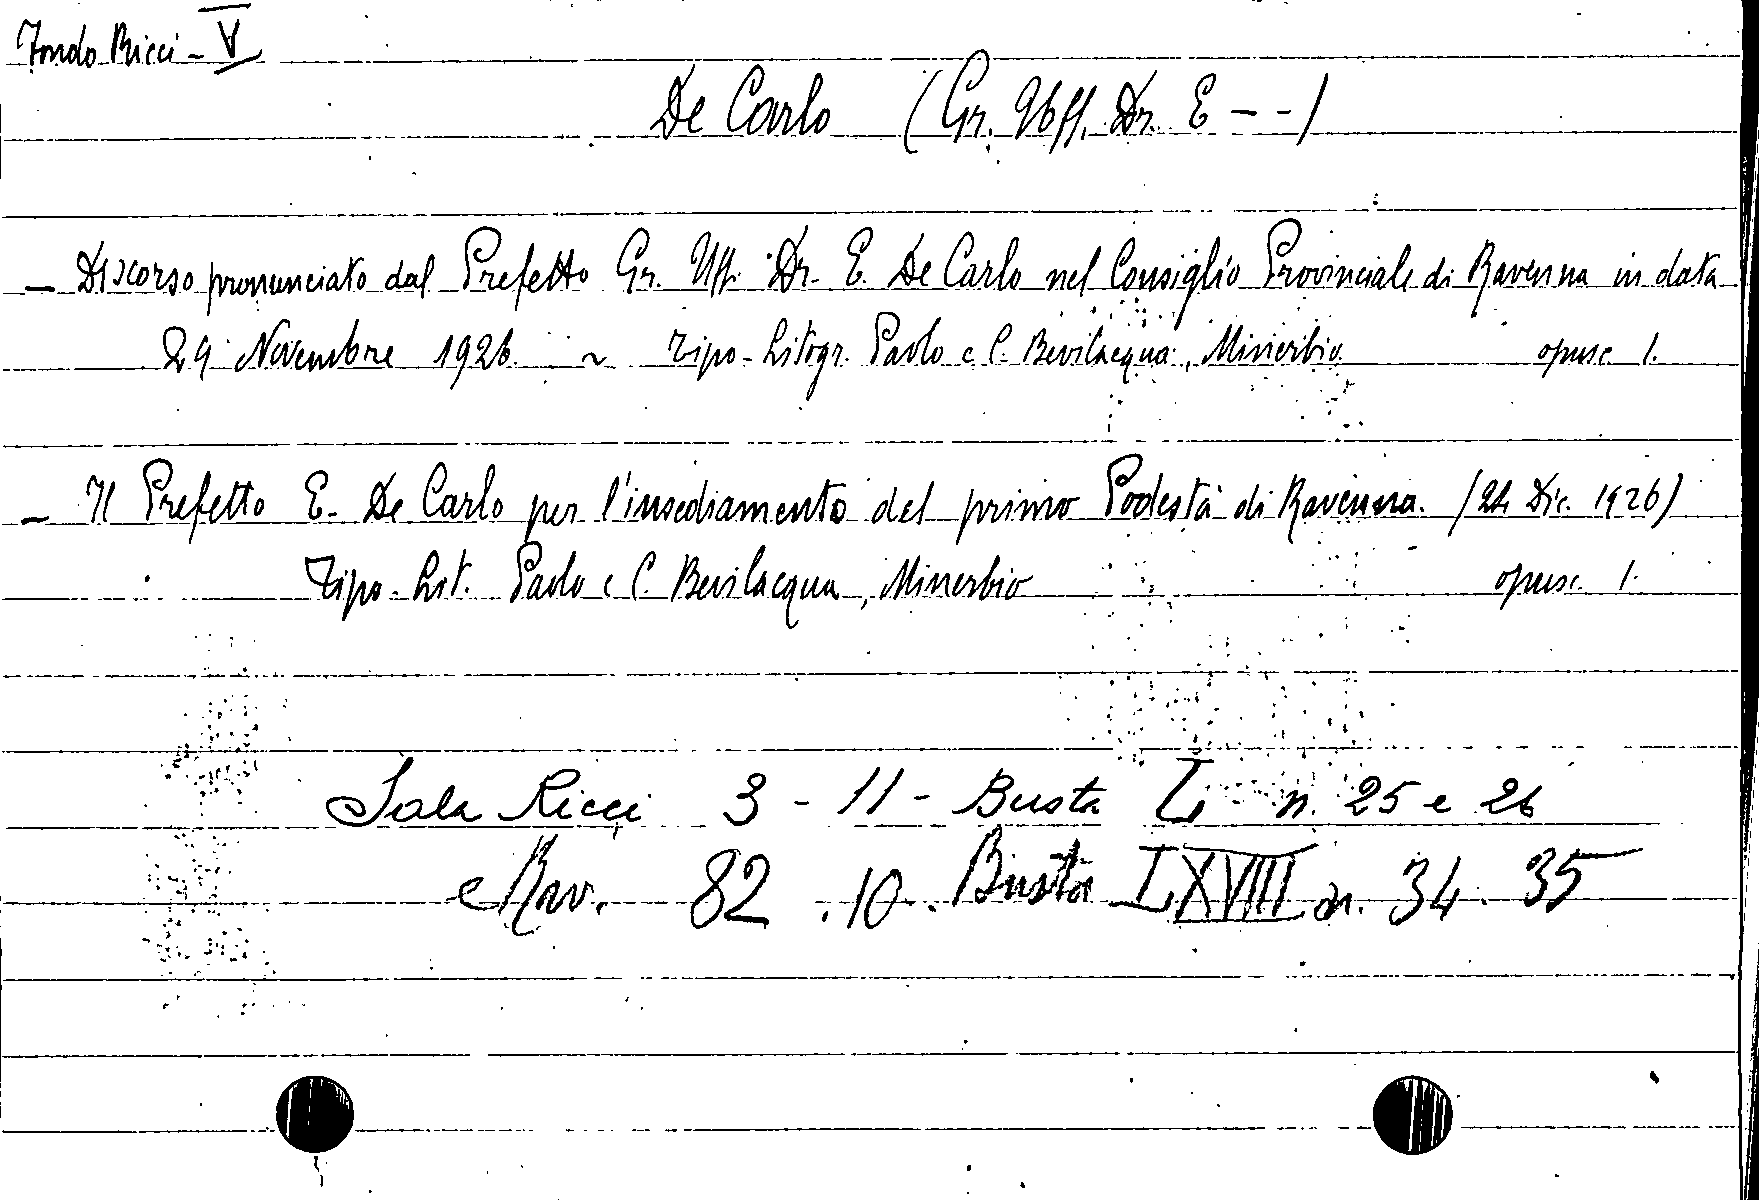 Fondo Ricci - V
De Carlo (Gr. Uff. Dr. E - -)
- Discorso pronunciato dal Prefetto Gr. Uff. Dr. E. De Carlo nel Consiglio Provinciale di Ravenna in data
29 Novembre 1926. ~ Tipo-Litogr. Paolo e C. Bevilacqua, Minerbio. opusc. 1.
- Il Prefetto E. De Carlo per l'insediamento del primo Podestà di Ravenna. (24 Dic. 1926)
Tipo-Lit. Paolo e C. Bevilacqua, Minerbio opusc. 1.
Sala Ricci 3 - 11 - Busta n. 25 e 26
e Rav. 82 . 10 . Busta LXVIII n. 34 . 35